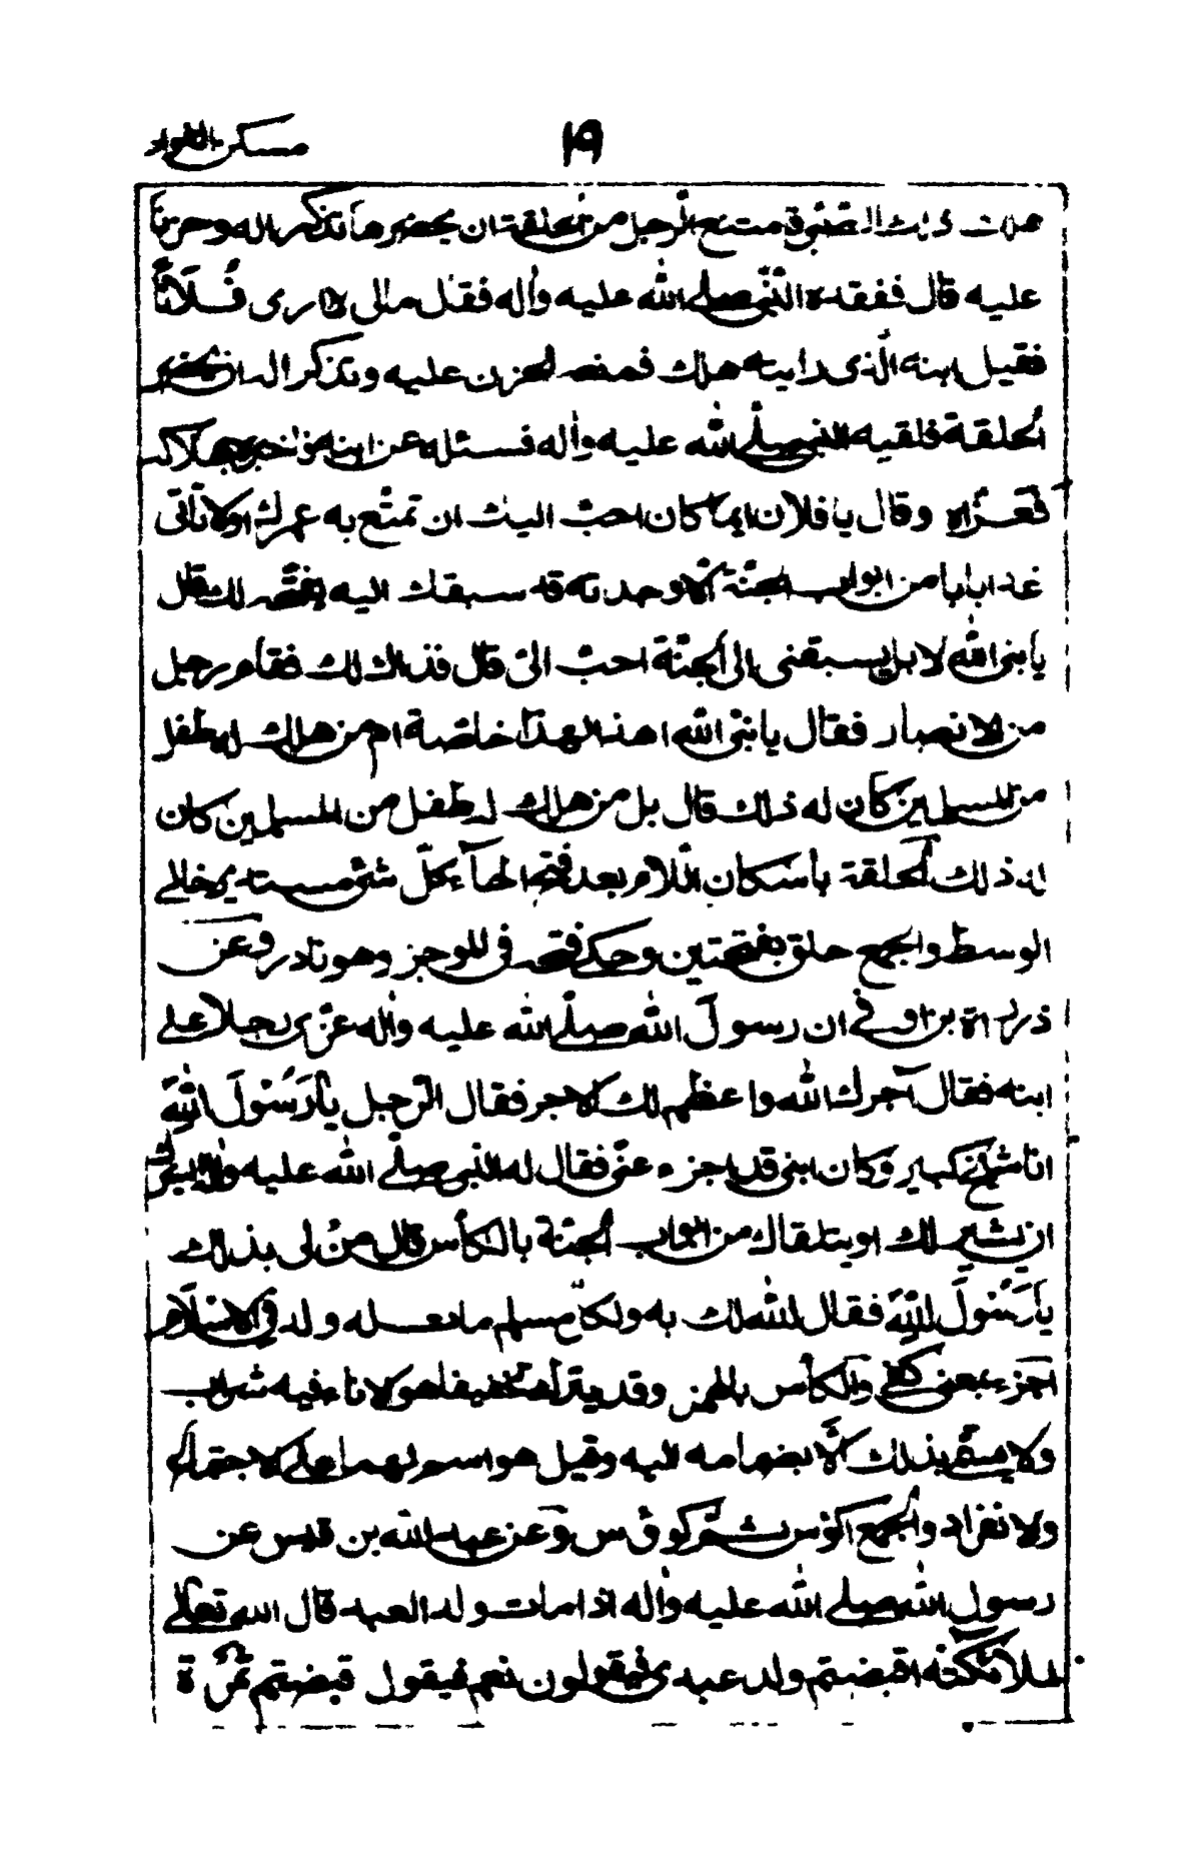 ١٩ مسكن الفؤاد
هلك ذلك الصّبيّ فامتنع الرّجل من الحلقة ان يحضرها تذكرا له وحزنا
عليه قال ففقده النّبى صلى الله عليه واله فقال مالى لا ارى فُلَانًا
فقيل ابنه الّذى رايته هلك فمنعه الحزن عليه وتذكر اله ان يحضر
الحلقة فلقيه النبى صلّى الله عليه واله فسئله عن ابنه فاخبره بهلاكه
فَعَزّاه وقال يا فلان ايما كان احبّ اليك ان تمتّع به عمرك اولا تأتى
غدا بابا من ابواب الجنّة الّا وجدته قد سبقك اليه يفتحه لك قال
يا نبى الله لا بل يسبقنى الى الجنّة احبّ الىّ قال فذاك لك فقام رجل
من الانصار فقال يا نبىّ الله اهذا لهذا خاصّة ام من هلك له طفل
من المسلمين كان له ذلك قال بل من هلك له طفل من المسلمين كان
له ذلك الحلقة بأسكان اللّام بعد فتح الحاء كلّ شئ مستدير خالى
الوسط والجمع حلق بفتحتين وحكى فتحه فى الموجز وهو نادر وعن
زرارة بن اوفى ان رسول الله صلّى الله عليه واله عزّى رجلا على
ابنه فقال آجرك الله واعظم لك الاجر فقال الرّجل يا رَسُولَ اللَّهِ
انا شيخ كبير وكان ابنى قد اجزء عنّى فقال له النبى صلّى الله عليه واله ايسرّك
ان يشير لك او يتلقاك من ابواب الجنّة بالكأس قال من لى بذلك
يا رَسُولَ اللَّهِ فقال الله لك به ولكلّ مسلم مات له ولد فى الاسلام
اجزء بمعنى كفى والكأس بالهمز وقد يترك تخفيفا هو الاناء فيه شراب
ولا يسمّى بذلك الّا بضمامه اليه وقيل هو اسم لهما على الاجتماع
والانفراد والجمع اكؤس ثمّ كؤوس وعن عبد الله بن قيس عن
رسول الله صلى الله عليه واله اذا مات ولد العبد قال الله تعالى
لملائكته اقبضتم ولد عبدى فيقولون نعم فيقول قبضتم ثمرة